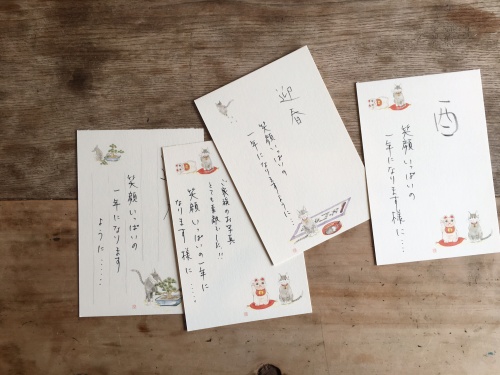 笑顔いっぱいの
一年になります
ように……
ご家族のお写真
とても素敵でした!!
笑顔いっぱいの一年に
なります様に……
迎春
笑顔いっぱいの
一年になりますように…
酉
笑顔いっぱいの
一年になります様に…